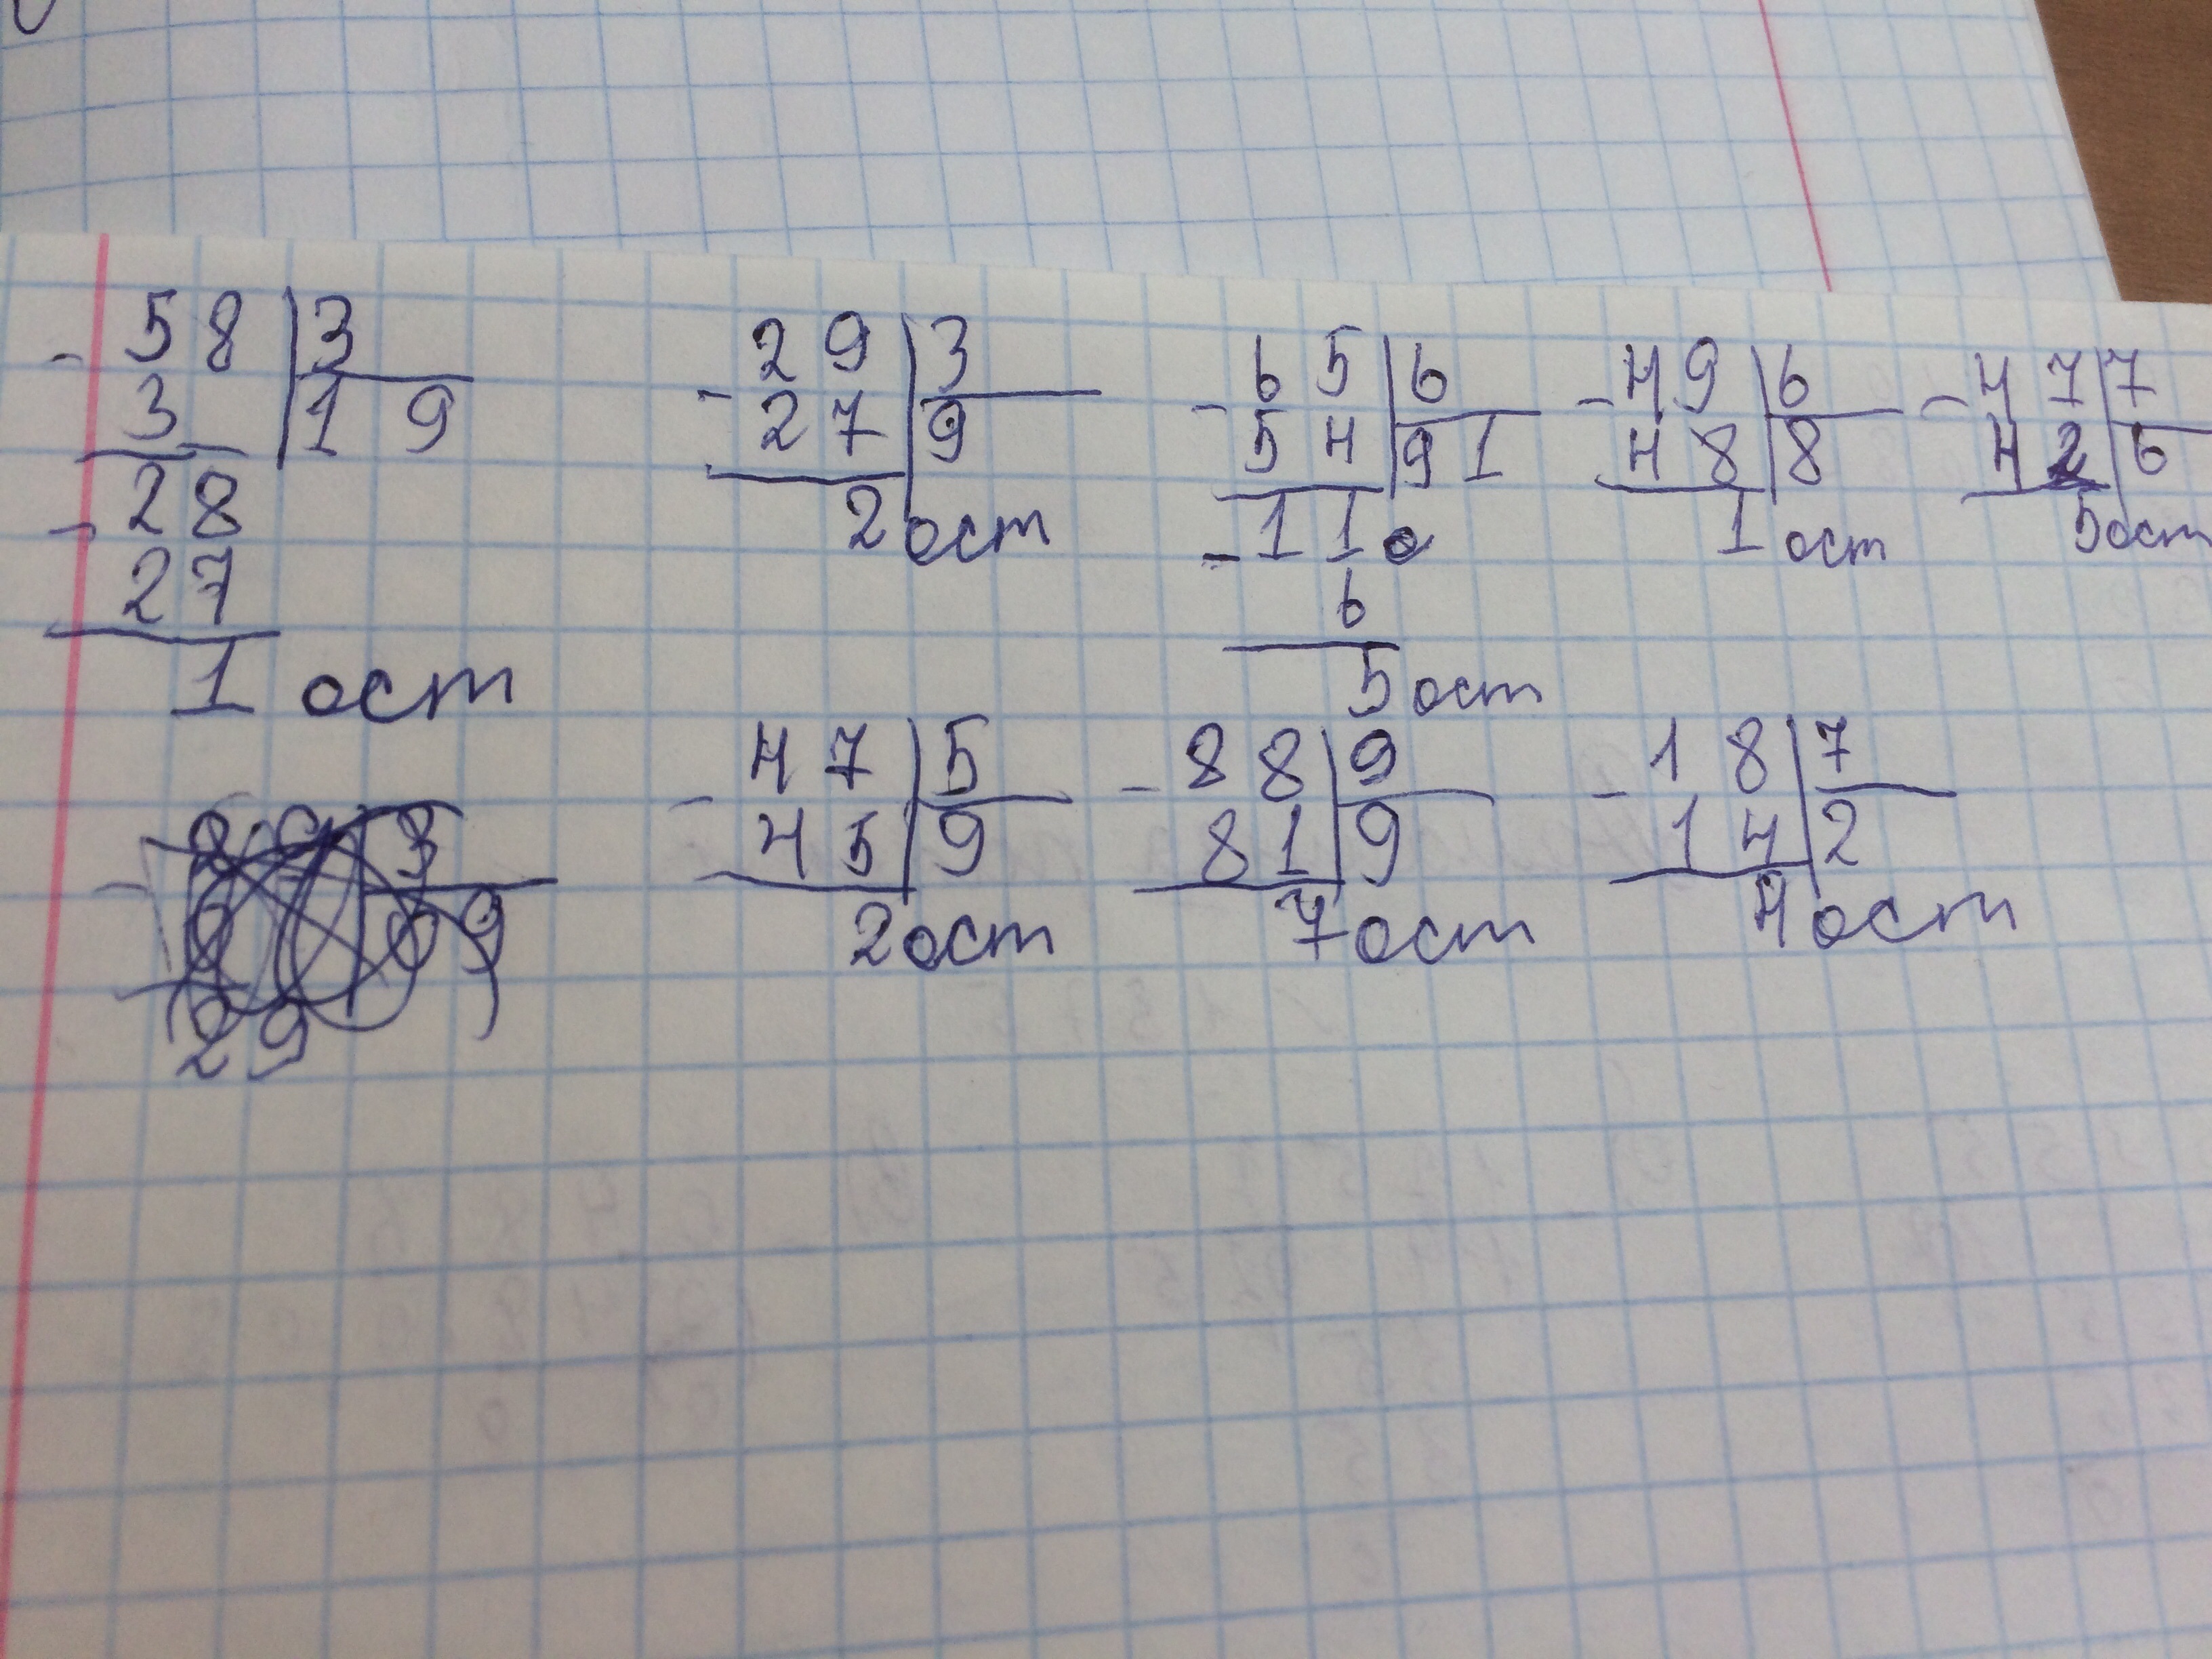 - 58 | 3 - 29 | 3 - 65 | 6 - 49 | 6 - 47 | 7
3 | 19 27 | 9 54 | 91 48 | 8 42 | 6
- 28 2 ост - 11 1 ост 5 ост
27 6
1 ост 5 ост
- 47 | 5 - 88 | 9 - 18 | 7
45 | 9 81 | 9 14 | 2
2 ост 7 ост 4 ост
29